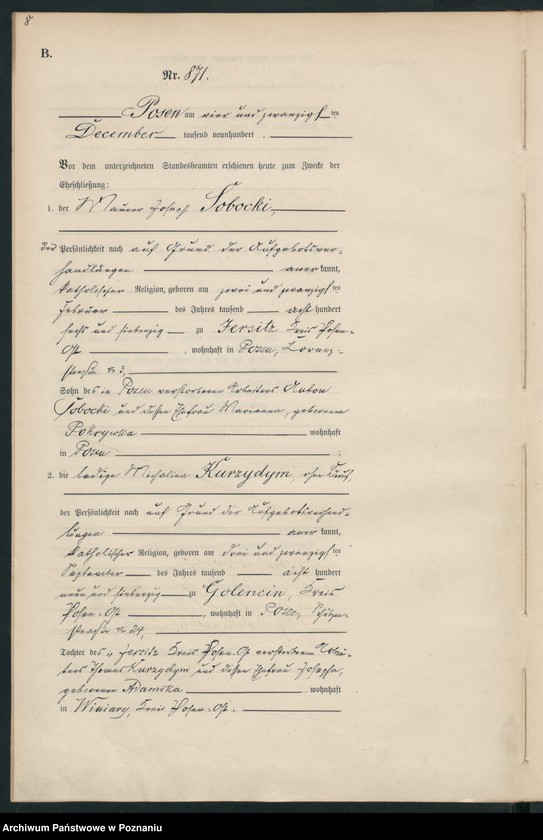 8
B.
Nr. 871.
Posen am vier und zwanzigsten
December tausend neunhundert
Vor dem unterzeichneten Standesbeamten erschienen heute zum Zwecke der
Eheschließung:
1. der Maurer Joseph Sobocki,
der Persönlichkeit nach auf Grund der Aufgebotsver-
handlungen anerkannt,
katholischer Religion, geboren am zwei und zwanzigsten
Februar des Jahres tausend acht hundert
sechs und siebenzig zu Jersitz Kreis Posen-
Ost, wohnhaft in Posen, Lorenz-
straße № 3,
Sohn des in Posen verstorbenen Arbeiters Anton
Sobocki und dessen Ehefrau Marianna, geborenen
Pokrywka wohnhaft
in Posen ;
2. die ledige Michalina Kurzydym, ohne Beruf,
der Persönlichkeit nach auf Grund der Aufgebotsverhand-
lungen anerkannt,
katholischer Religion, geboren am drei und zwanzigsten
September des Jahres tausend acht hundert
neun und siebenzig zu Golencin, Kreis
Posen-Ost, wohnhaft in Posen,
straße № 24,
Tochter des in Jersitz Kreis Posen-Ost verstorbenen Arbei-
ters Thomas Kurzydym und dessen Ehefrau Josepha,
geborenen Adamska wohnhaft
in Winiary, Kreis Posen-Ost.
Archiwum Państwowe w Poznaniu